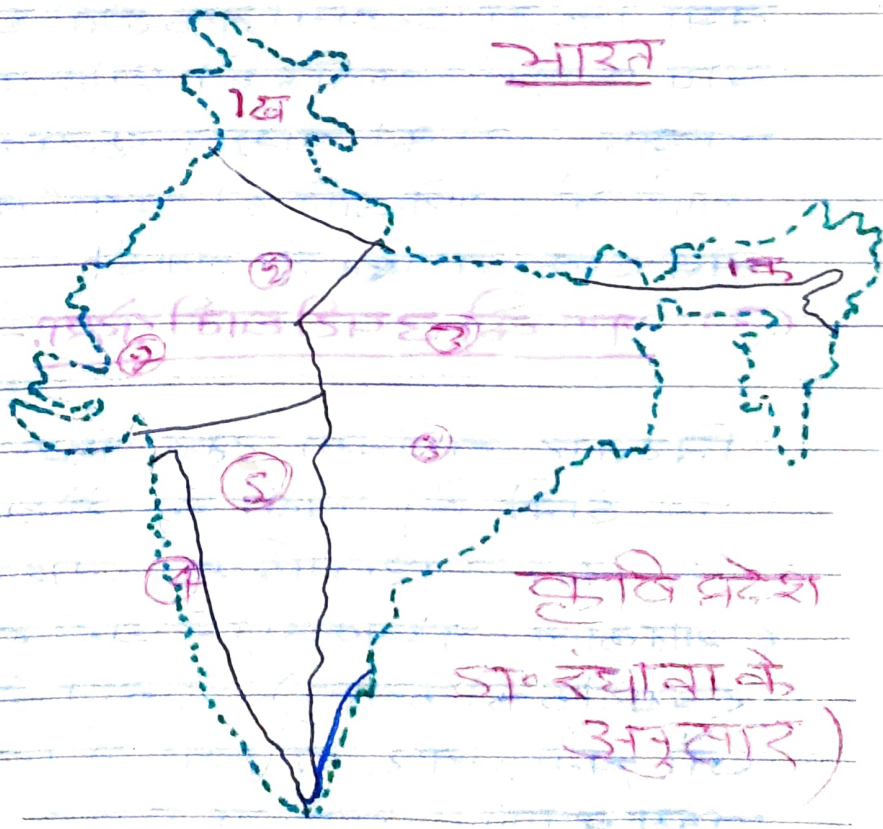 भारत
1ख
1क
②
③
②
③
⑤
④
कृषि प्रदेश
डा॰ रंधावा के
अनुसार)